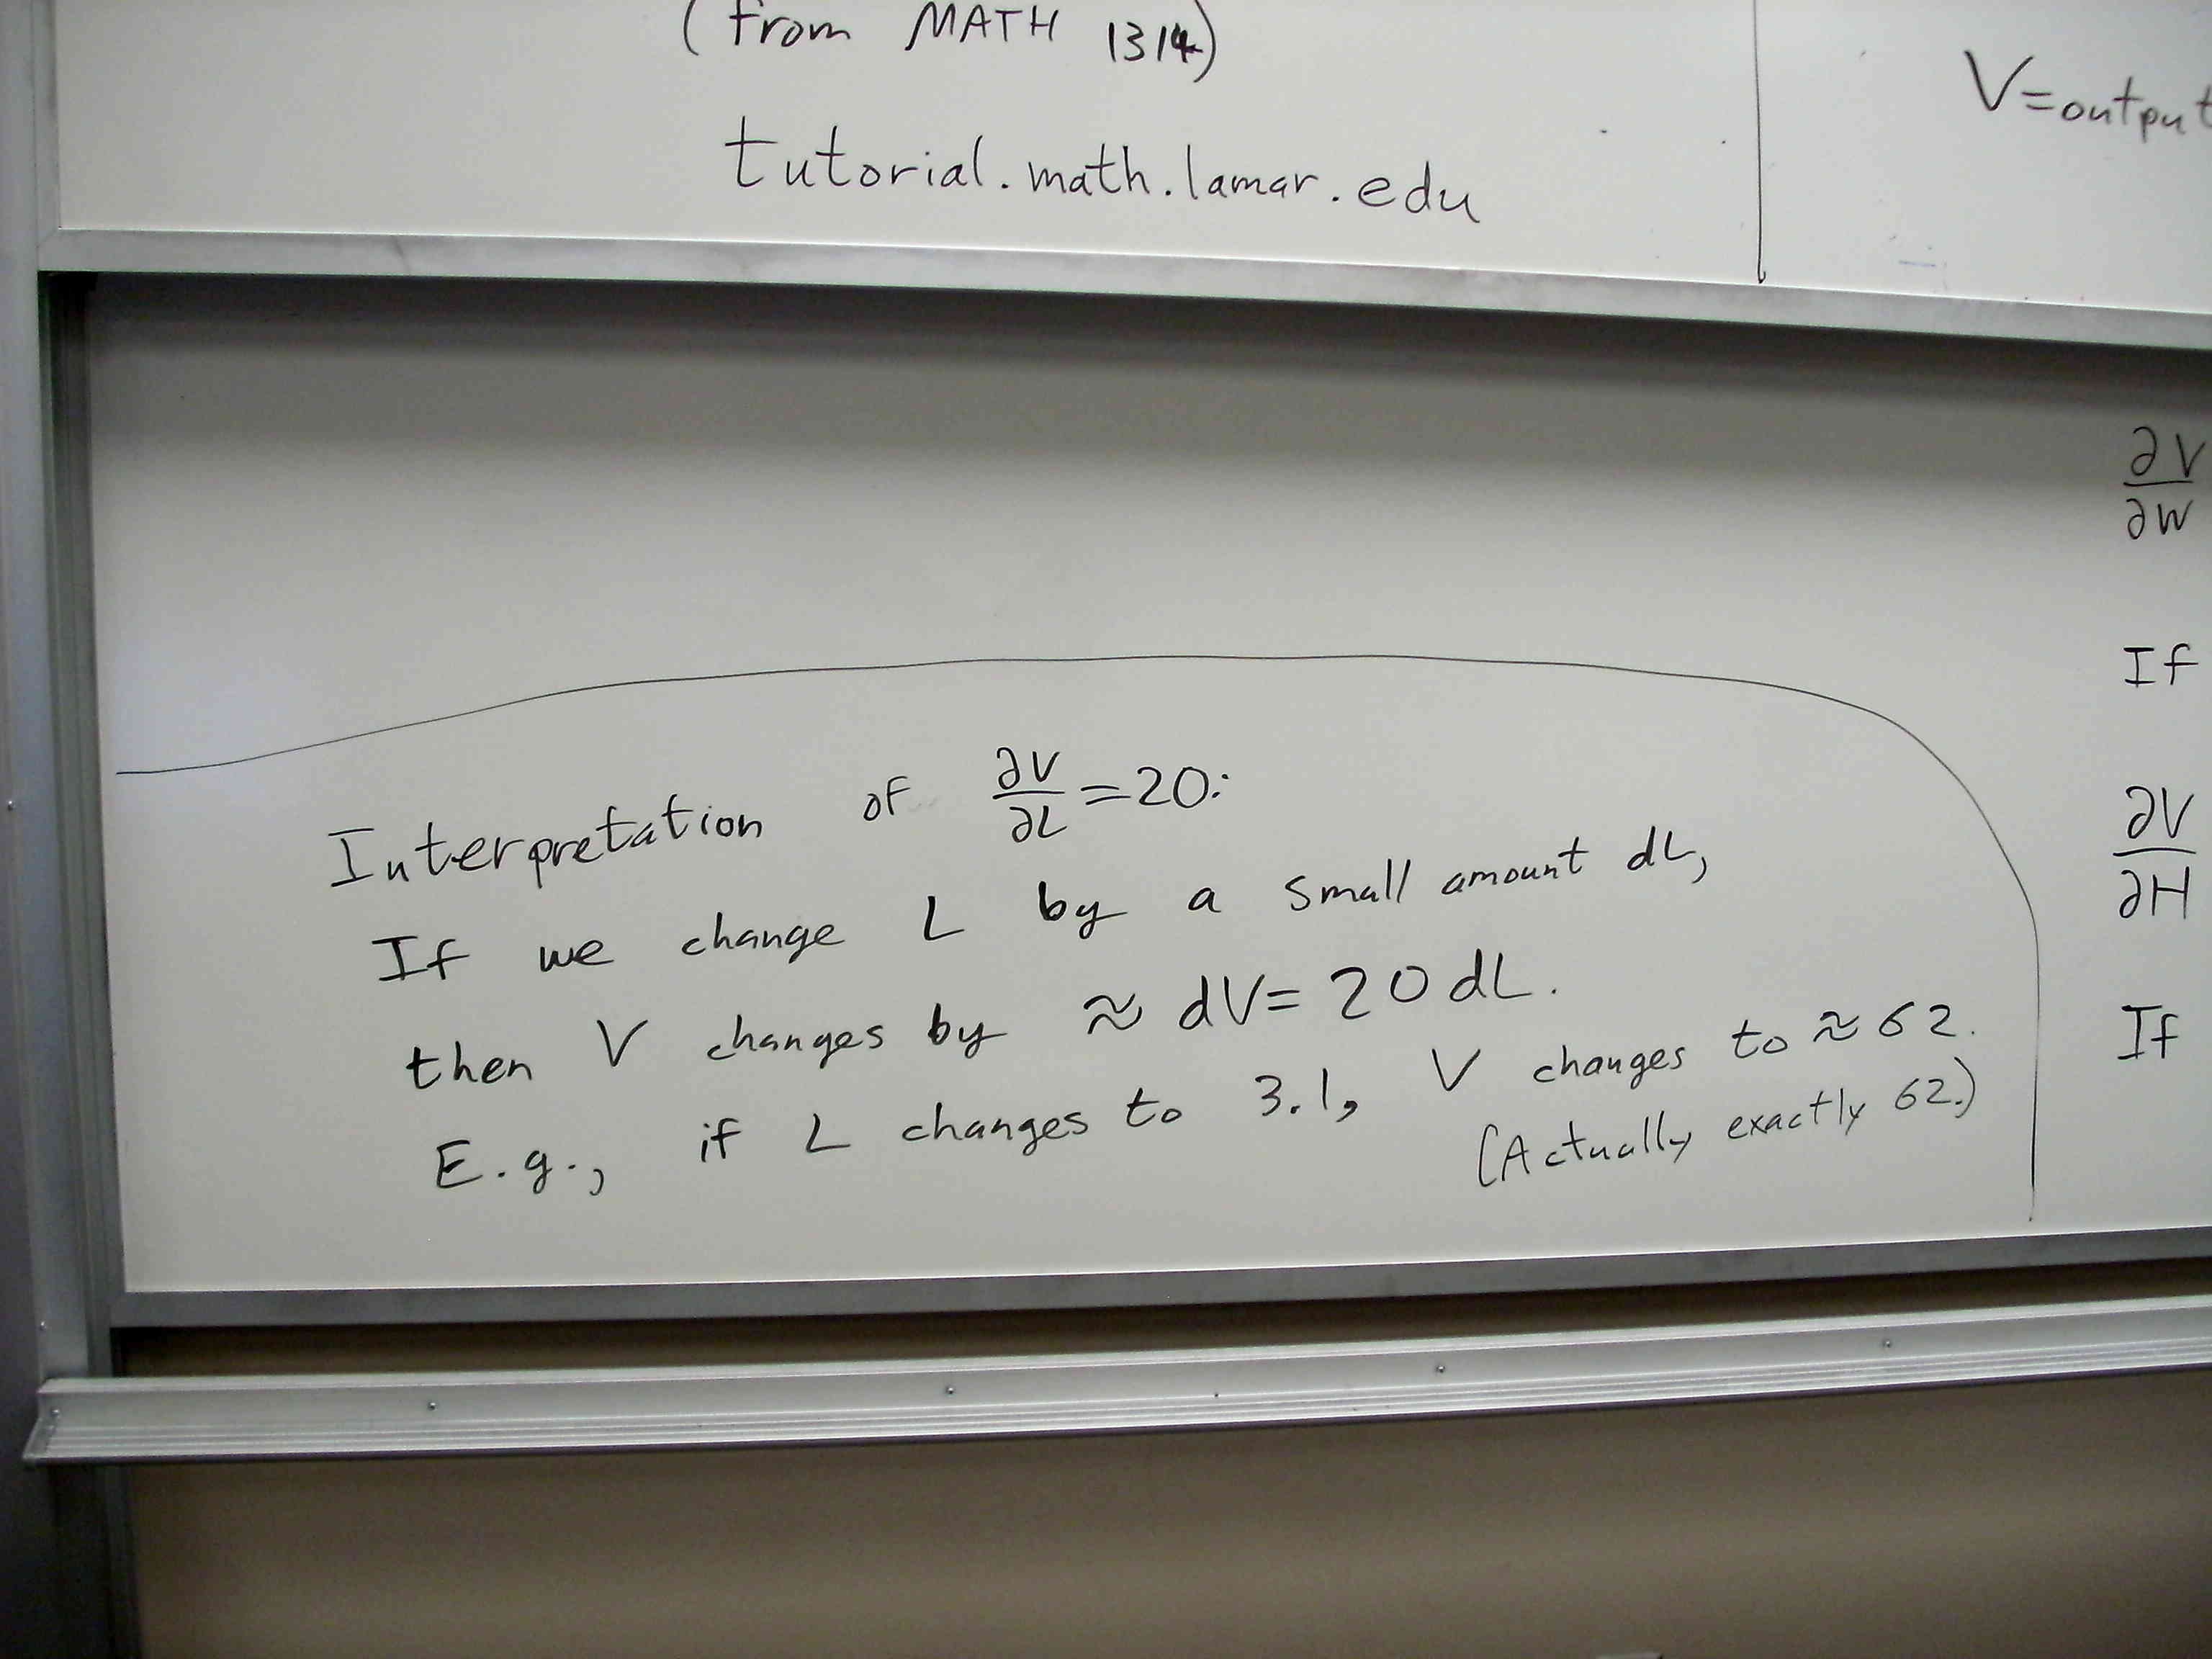 (from MATH 1314)
tutorial.math.lamar.edu
V=output
Interpretation of ∂V/∂L=20:
If we change L by a small amount dL,
then V changes by ≈ dV= 20 dL.
E.g., if L changes to 3.1, V changes to ≈ 62.
(Actually exactly 62.)
∂V/∂W
If
∂V/∂H
If